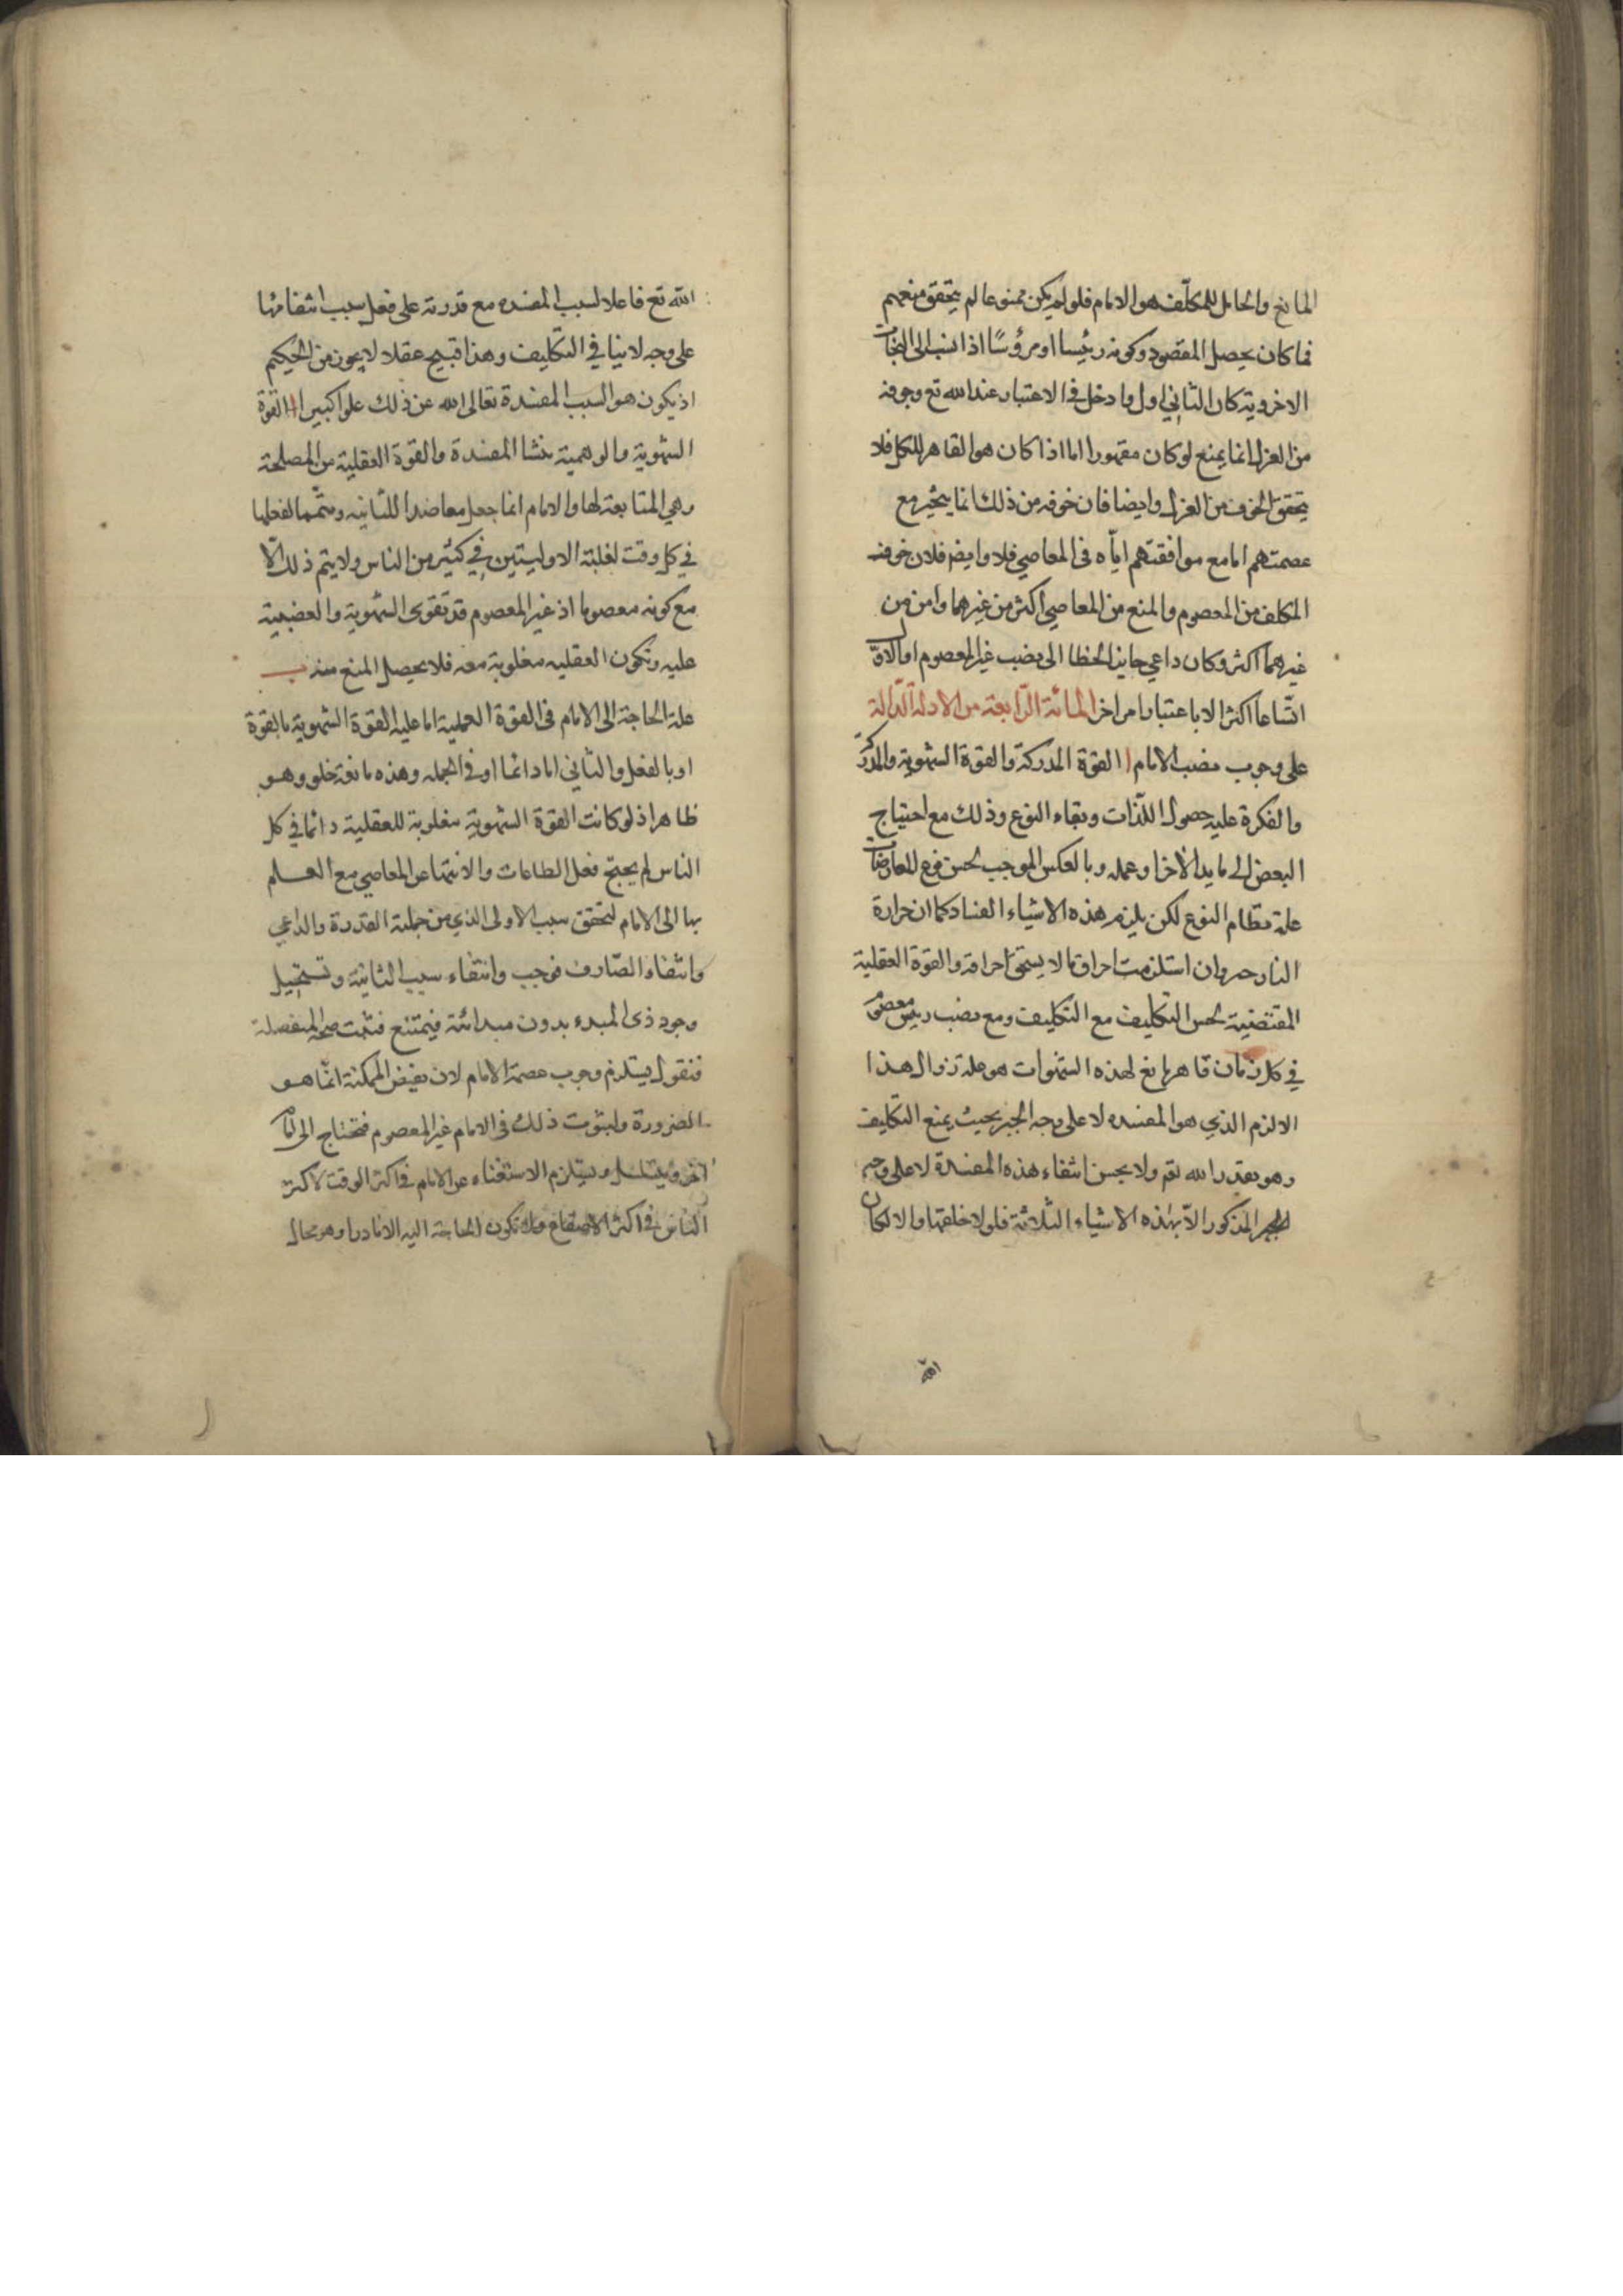 المانع والحامل للمكلّف هو الامام فلو لم يكن ممنوعا لم يتحقق منعهم
فما كان يحصل المقصود وكونه رئيسا او مرؤسًا اذا انسب الى النجات
الاخروية كان الثاني اولى وادخل في الاعتبار عند الله تع وخوفه
من العزل انما يمنع لو كان مقهورا اما اذا كان هو القاهر للكل فلا
يتحقق الخوف من العزل وايضا فان خوفه من ذلك انما يتخير مع
عصمتهم اما مع موافقتهم ايّاه في المعاصي فلا وايضم فلان خوف
المكلف من المعصوم والمنع من المعاصي اكثر من غيرهما وامن من
غيرهما اكثر وكان داعي جايز الخطا الى نصب غير المعصوم او الاقل
اتّباعا اكثر الا باعتبار امر اخر المائة الرّابعة من الادلة الدّالة
على وجوب نصب الامام ا القوة المدركة والقوة الشهوية والمدركة
والفكرة علية حصول اللّذات وبقاء النوع وذلك مع احتياج
البعض الى ما يد الاخر او عمله وبالعكس الموجب لحسن فرع للعارضات
علة نظام النوع لكن يلزم هذه الاشياء الفساد كما ان حرارة
النار حرها وان استلزمت احراق ما لا يستحق احراقه والقوة العقلية
المقتضية لحسن التكليف مع التكليف ومع نصب رئيس معصوم
في كل زمان قاهر مانع لهذه الشهوات هو علة زوال هذا
الالزم الذي هو المفسده لا على وجه الجبر بحيث يمنع التكليف
وهو بقدر الله تقم ولا يحسن انتفاء هذه المفسدة لا على وجه
الجبر المذكور الّا بهذه الاشياء الثلاثة فلولا خلقها والا لكان
الله
الله تع فاعلا لسبب المفسده مع قدرته على فعل سبب انتفائها
على وجه لا ينافي التكليف وهذا قبيح عقلا لا يجوز من الحكيم
اذ يكون هو السبب المفسدة تعالى الله عن ذلك علوا كبيرا ا القوة
الشهوية والوهمية منشا المفسدة والقوة العقلية من المصلحة
وهي المتابعة لها والامام انما جعل معاضدا للثانيه ومتمما لفعلها
في كل وقت لغلبة الاوليتين في كثير من الناس ولا يتم ذلك الّا
مع كونه معصوما اذ غير المعصوم قد تقوى الشهوية والغضبية
عليه وتكون العقليه مغلوبة معه فلا يحصل المنع منه ب
علة الحاجة الى الامام في القوة العملية اما علية القوة الشهوية بالقوة
او بالفعل والثاني اما دائما او في الجمله وهذه مانعة خلو وهو
ظاهر اذ لو كانت القوة الشهوية مغلوبة للعقلية دائما في كل
الناس لم يحتج فعل الطاعات والانتهاء عن المعاصي مع العلم
بها الى الامام لتحقق سبب الاولى الذي من جملته القدرة والداعي
وانتفاء الصّارف فوجب وانتفاء سبب الثانية وتستحيل
وجود ذى المبدء بدون مبدائه فيمتنع فثبت صحة المنفصلة
فنقول يستلزم وجوب عصمة الامام لان نقيض الممكنة انما هو
الضرورة ولثبوت ذلك في الامام غير المعصوم فتحتاج الى امام
اخر ويتسلسل ويستلزم الاستغناء عن الامام في اكثر الوقت لاكثر
الناس في اكثر الاصقاع ولا تكون الحاجة اليه الا نادرا وهو محال